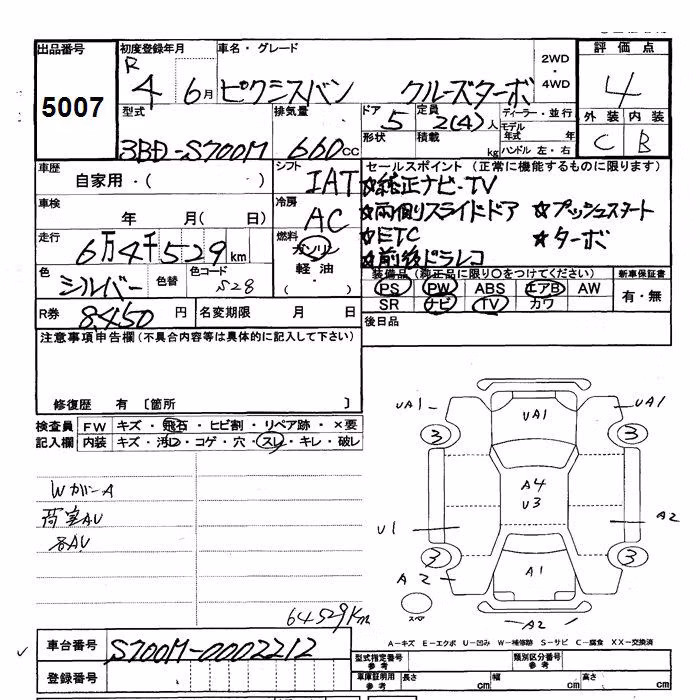 出品番号 初度登録年月 車名・グレード 2WD・4WD 評価点
5007 R4 6月 ピクシスバン クルーズターボ 4
型式 排気量 ドア 定員 ディーラー・並行 外装 内装
3BD-S700M 660cc 5 2(4)人 C B
形状 積載 kg モデル年式 年 ハンドル 左・右
車歴 自家用・( ) シフト IAT
セールスポイント (正常に機能するものに限ります)
☆純正ナビ・TV
☆両側スライドドア ☆プッシュスタート
☆ETC ☆ターボ
☆前後ドラレコ
車検 年 月( 日) 冷房 AC
走行 6万4千529km 燃料 ガソリン 軽油 ( ・ )
色 シルバー 色替 色コード S28
装備品(純正品に限り○をつけてください) 新車保証書
PS PW ABS エアB AW 有・無
SR ナビ TV カワ
R券 8,450円 名変期限 月 日
後日品
注意事項申告欄(不具合内容等は具体的に記入して下さい)
修復歴 有 〔箇所 〕
検査員 FW キズ・飛石・ヒビ割・リペア跡・×要
記入欄 内装 キズ・汚レ・コゲ・穴・スレ・キレ・破レ
Wガバーハ
荷室AU
各AU
UA1 UA1 UA1
3 3
A4
U3
U1 A2
3 3
A2 A1
スペア A2
64529Km
A-キズ E-エクボ U-凹み W-補修跡 S-サビ C-腐食 XX-交換済
車台番号 S700M-0002212
登録番号
型式指定番号 参考 類別区分番号 参考
車庫証明用 参考 長さ cm 幅 cm 高さ cm